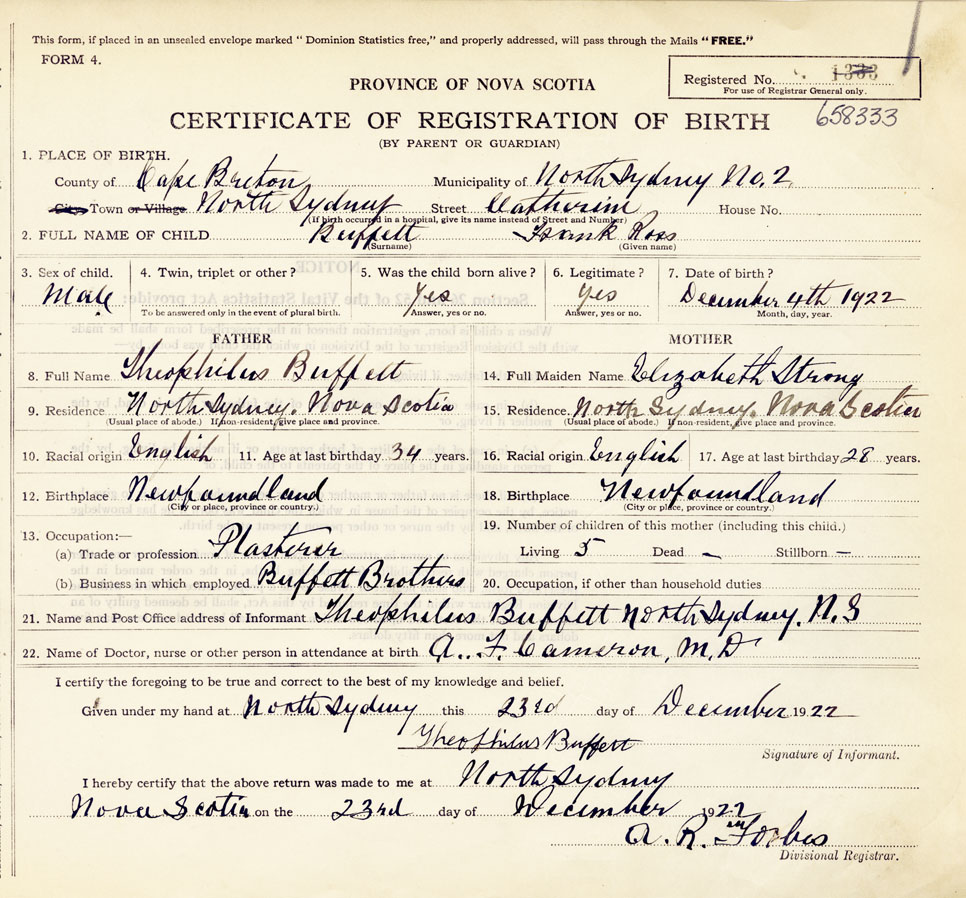 This form, if placed in an unsealed envelope marked "Dominion Statistics free," and properly addressed, will pass through the Mails "FREE."
FORM 4.
Registered No. 1333
For use of Registrar General only.
658333
PROVINCE OF NOVA SCOTIA
CERTIFICATE OF REGISTRATION OF BIRTH
(BY PARENT OR GUARDIAN)
1. PLACE OF BIRTH.
County of Cape Breton Municipality of North Sydney No. 2
City Town or Village North Sydney Street Catherine House No.
(If birth occurred in a hospital, give its name instead of Street and Number)
2. FULL NAME OF CHILD Buffett Frank Ross
(Surname) (Given name)
3. Sex of child. 4. Twin, triplet or other? 5. Was the child born alive? 6. Legitimate? 7. Date of birth?
Male Yes Yes December 4th 1922
To be answered only in the event of plural birth. Answer, yes or no. Answer, yes or no. Month, day, year.
FATHER MOTHER
8. Full Name Theophilus Buffett 14. Full Maiden Name Elizabeth Strong
9. Residence North Sydney. Nova Scotia 15. Residence. North Sydney. Nova Scotia
(Usual place of abode.) If non-resident, give place and province. (Usual place of abode.) If non-resident, give place and province.
10. Racial origin English 11. Age at last birthday 34 years. 16. Racial origin English 17. Age at last birthday 28 years.
12. Birthplace Newfoundland 18. Birthplace Newfoundland
(City or place, province or country.) (City or place, province or country.)
19. Number of children of this mother (including this child.)
13. Occupation:—
(a) Trade or profession Plasterer Living 5 Dead – Stillborn –
(b) Business in which employed Buffett Brothers 20. Occupation, if other than household duties
21. Name and Post Office address of Informant Theophilus Buffett North Sydney. N. S
22. Name of Doctor, nurse or other person in attendance at birth A. F. Cameron, M. D
I certify the foregoing to be true and correct to the best of my knowledge and belief.
Given under my hand at North Sydney this 23rd day of December 1922
Theophilus Buffett
Signature of Informant.
I hereby certify that the above return was made to me at North Sydney
Nova Scotia on the 23rd day of December 1922
A. R. Forbes
Divisional Registrar.